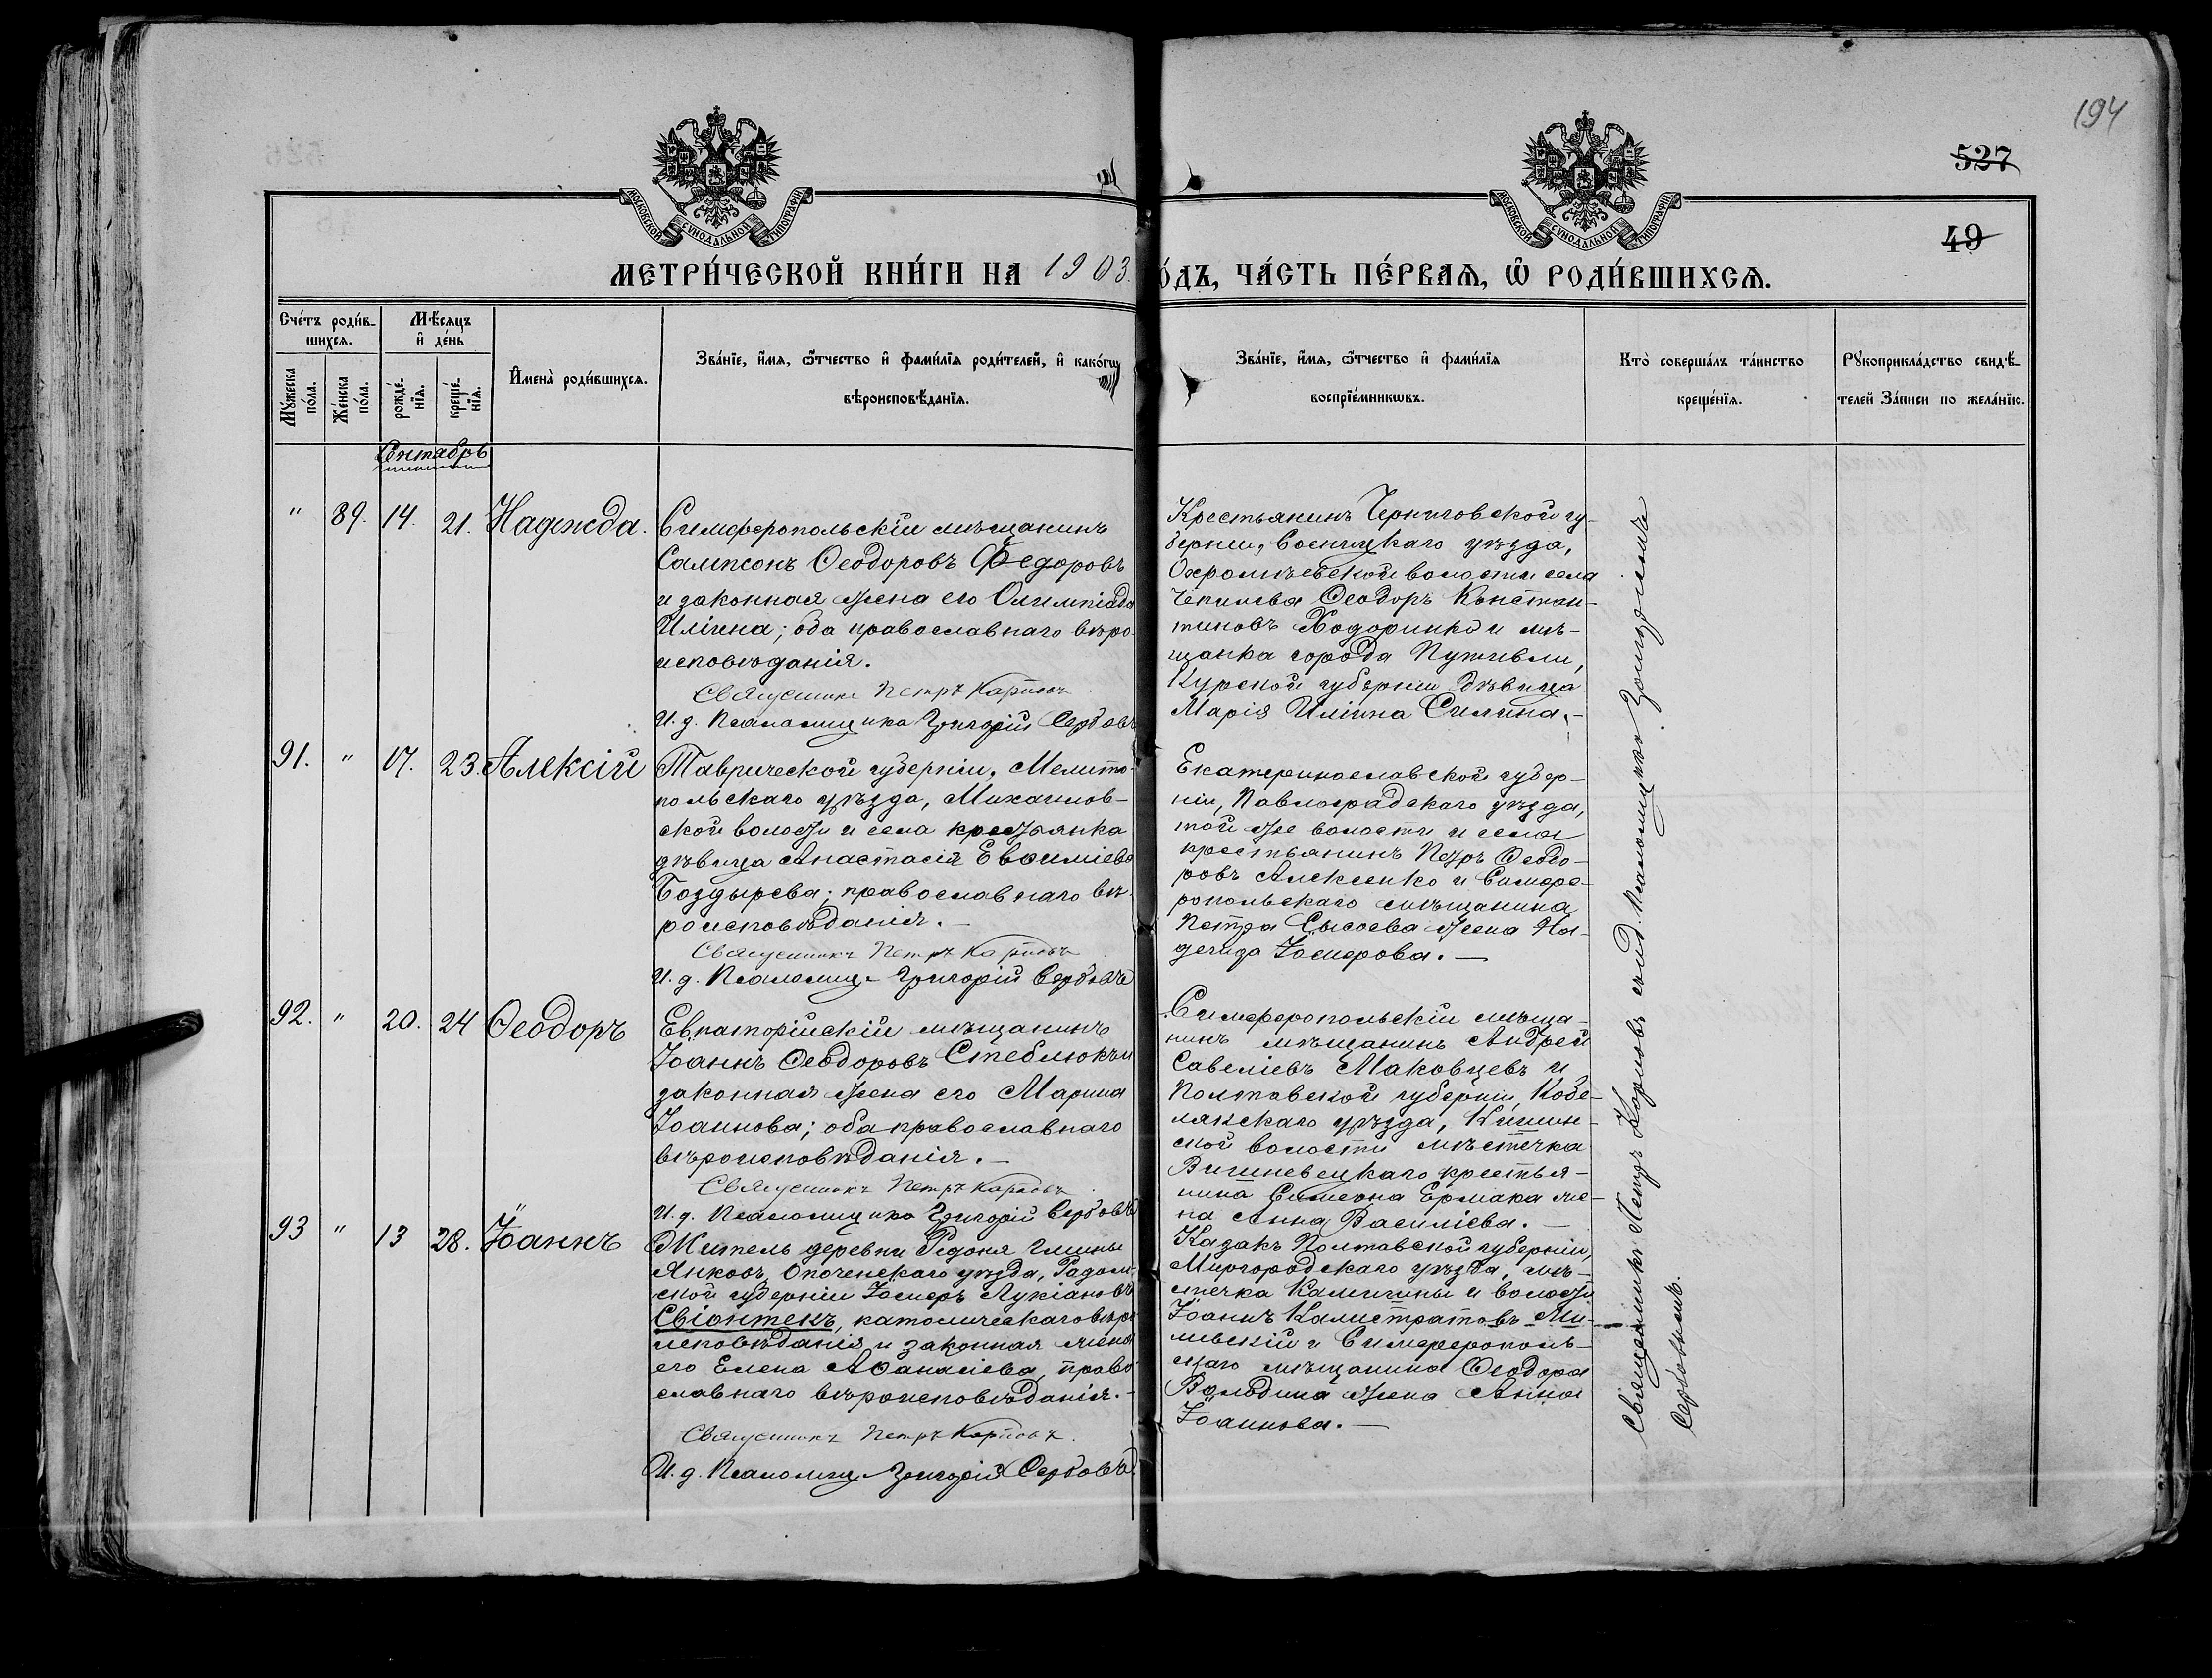 194
527
49
МОСКОВСКОЙ СУНОДАЛЬНОЙ ТИПОГРАФІИ
МОСКОВСКОЙ СУНОДАЛЬНОЙ ТИПОГРАФІИ
МЕТРИ́ЧЕСКОЙ КНИ́ГИ НА 1903. ОДЪ, ЧА́СТЬ ПЕ́РВАѦ, Ѡ РОДИ́ВШИХСѦ.
Счéтъ роди́в-
шихсѧ.
Мꙋ́жеска по́ла.
Же́нска по́ла.
Мѣ́сѧцъ
и҆ де́нь
рожде́-
нїѧ.
креще́-
нїѧ.
И҆мена̀ роди́вшихсѧ.
Зва́нїе, и҆́мѧ, ѻ҆́тчество и҆ фами́лїѧ роди́телей, и҆ како́гѡ
вѣроисповѣ́данїѧ.
Зва́нїе, и҆́мѧ, ѻ҆́тчество и҆ фами́лїѧ
воспрїе́мникѡвъ.
Кто̀ соверша́лъ та́инство
креще́нїѧ.
Рꙋкоприкла́дство свидѣ́-
телей за́писи по жела́нїю.
Сентябрь
" 89. 14. 21. Надежда.
Симферопольскій мѣщанинъ
Сампсонъ Ѳеодоровъ Федоровъ
и законная жена его Олимпіада
Иліина; оба православнаго вѣро-
исповѣданія.
Священникъ Петръ Карповъ
И. д. Псаломщика Григорій Сербовъ
Крестьянинъ Черниговской гу-
берніи, Сосницкаго уѣзда,
Охрамѣевской волости села
Ѳеодоръ Констан-
тиновъ Ходоринко и мѣ-
щанка города Путивли,
Курской губерніи дѣвица
Марія Иліина Силина.-
91. " 17. 23. Алексій
Таврической губерніи, Мелито-
польскаго уѣзда, Михайлов-
ской волости и села крестьянка
дѣвица Анастасія Евѳиміева
Боздырева; православнаго вѣ-
роисповѣданія.-
Священникъ Петръ Карповъ
И. д. Псаломщ. Григорій Сербовъ
Екатеринославской губер-
ніи, Павлоградскаго уѣзда,
той же волости и села
крестьянинъ Петръ Ѳеодо-
ровъ Алексенко и Симфе-
ропольскаго мѣщанина
Петра Сысоева жена На-
дежда Іосифова.-
92. " 20. 24 Ѳеодоръ
Евпаторійскій мѣщанинъ
Іоаннъ Ѳеодоровъ Стеблюкъ и
законная жена его Марина
Іоаннова; оба православнаго
вѣроисповѣданія.-
Священникъ Петръ Карповъ
И. д. Псаломщика Григорій Сербовъ
Симферопольскій мѣща-
нинъ мѣщанинъ Андрей
Савеліевъ Маковцевъ и
Полтавской губерніи, Кобе-
лякскаго уѣзда, Кишин-
ской волости мѣстечка
Вишневецкаго крестья-
нина Симеона Ермака же-
на Анна Василіева.-
93 " 13 28. Іоаннъ
Житель деревни Глины
Янковъ, Опоченскаго уѣзда, Радом-
ской губерніи Іосифъ Лукіановъ
Свіонтекъ, католическаго вѣро-
исповѣданія и законная жена
его Елена Аѳанасіева, право-
славнаго вѣроисповѣданія.-
Священникъ Петръ Карповъ.
И. д. Псаломщ. Григорій Сербовъ
Казакъ Полтавской губерніи,
Миргородскаго уѣзда, мѣ-
стечка Камышны и волости
Іоаннъ Калистратовъ Ми-
левскій и Симферополь-
скаго мѣщанина Ѳеодора
Володина жена Анна
Іоаннова.-
Священникъ Петръ Карповъ съ и.д. псаломщика
Сербовымъ.